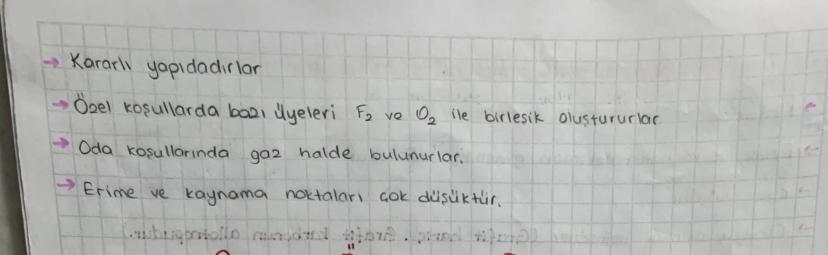 → Kararlı yapıdadırlar
→ Özel koşullarda bazı üyeleri F₂ ve O₂ ile birlesik olustururlar
→ Oda koşullarında gaz halde bulunurlar.
→ Erime ve kaynama noktaları çok düşüktür.